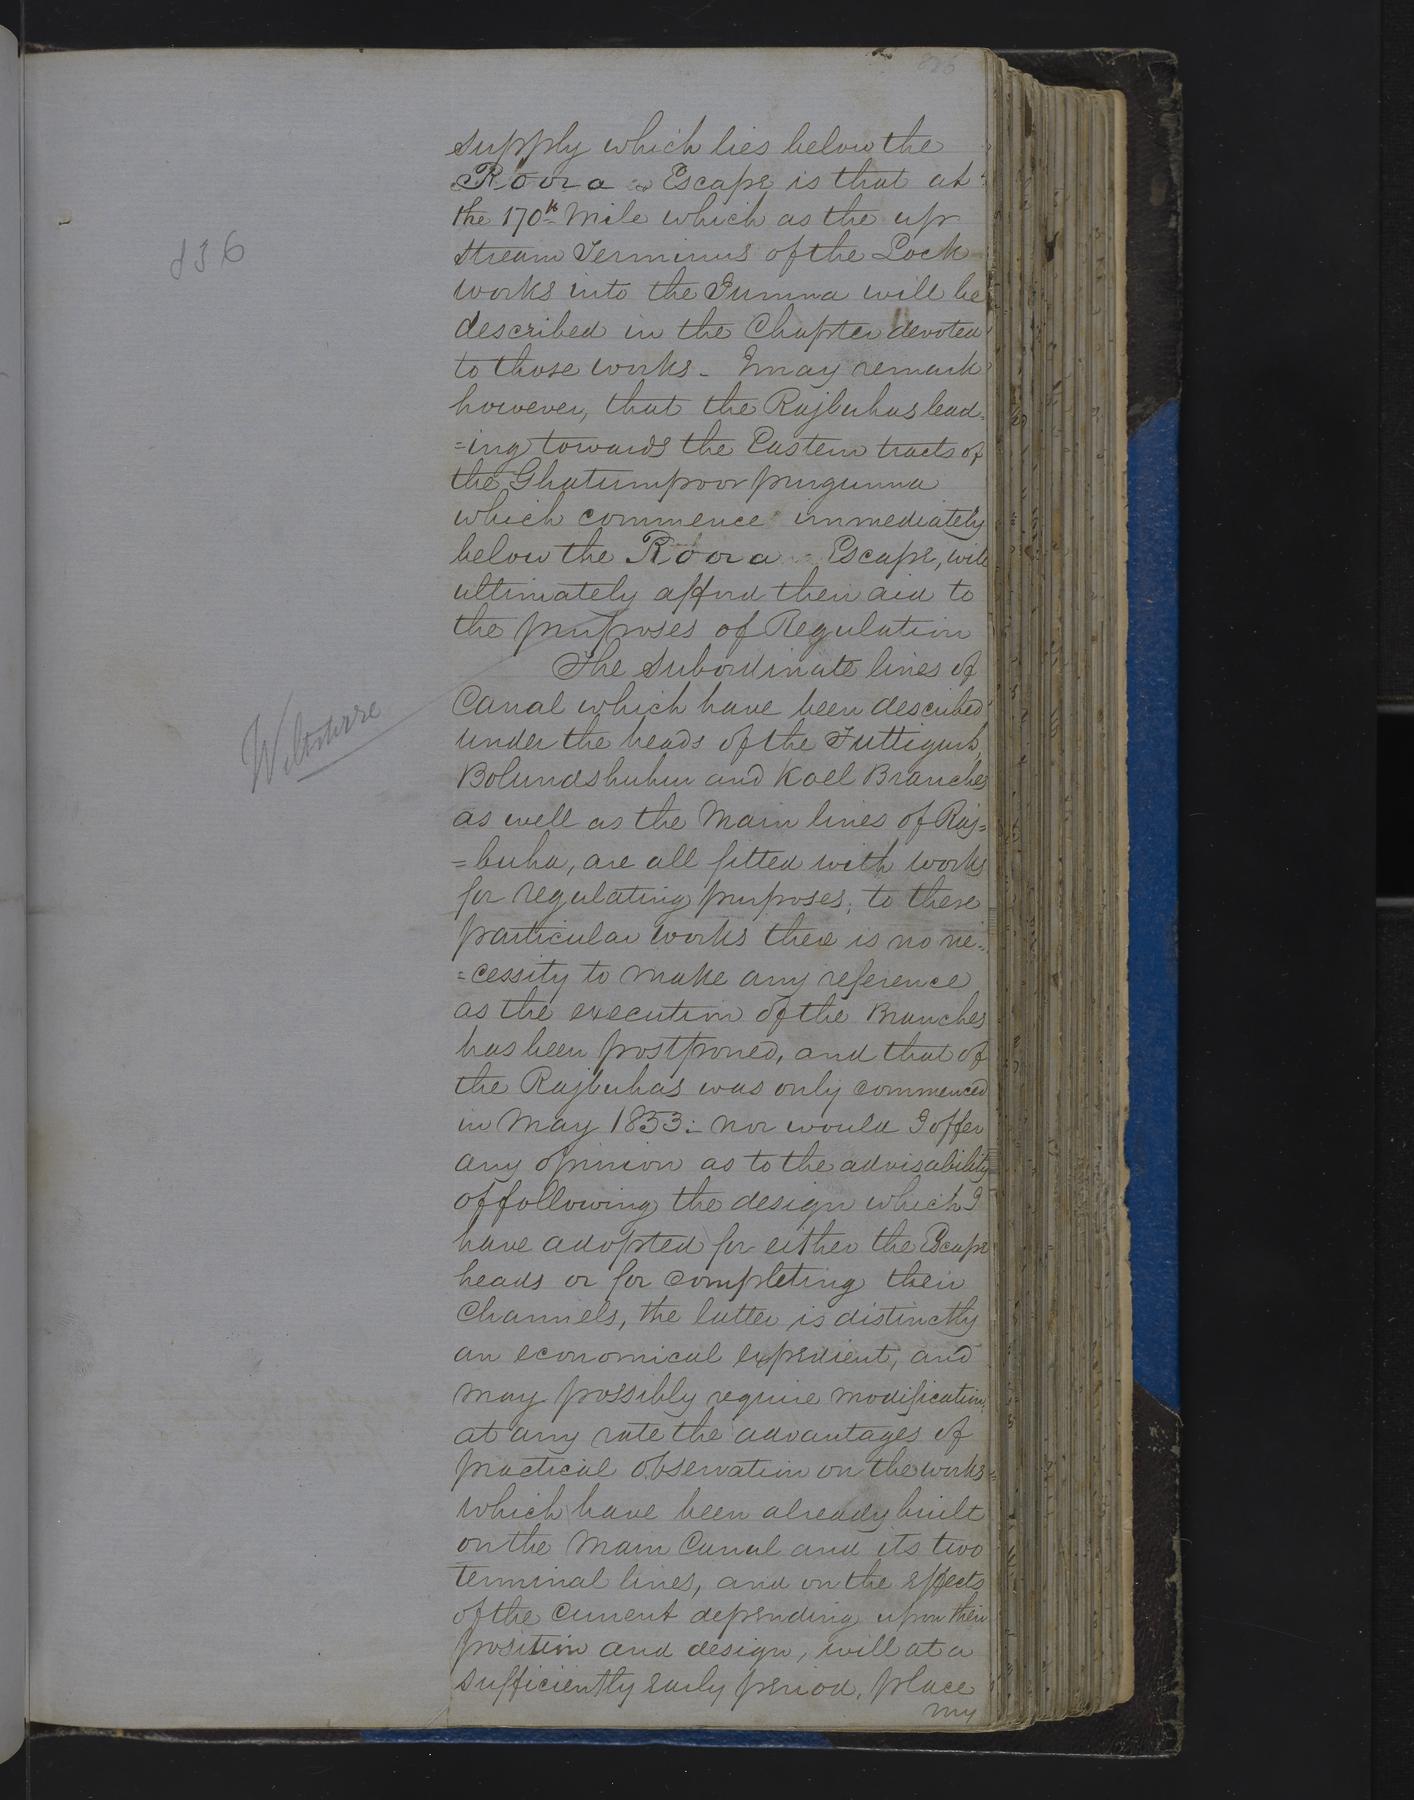 supply which lies below the
Roora Escape is that at
the 170th Mile which as the up
stream Terminus of the Lock
works into the Jumna will be
described in the Chapter devoted
to those works – I may remark
however, that the Rajbuhas lead=
=ing towards the Eastern tracts of
the Ghatumpoor purgunna
which commence immediately
below the Roora Escape, will
ultimately afford their aid to
the purposes of Regulation
The subordinate lines of
Canal which have been described
under the heads of the Futtigurh,
Bolundshuhur and Koel Branches
as well as the Main lines of Raj=
=buha, are all fitted with works
for regulating purposes; to these
particular works there is no ne=
=cessity to make any reference
as the execution of the Branches
has been postponed, and that of
the Rajbuhas was only commenced
in May 1853:– nor would I offer
any opinion as to the advisability
of following the design which I
have adopted for either the Escape
heads or for completing their
Channels, the latter is distinctly
an economical expedient, and
may possibly require modification,
at any rate the advantages of
practical observation on the works
which have been already built
on the Main Canal and its two
terminal lines, and on the effects
of the current depending upon their
position and design, will at a
sufficiently early period, place
my
836
Wiltshire